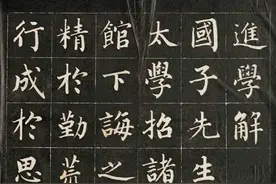 進學解
國子先生
太學招諸
館下誨之
精於勤荒
行成於思